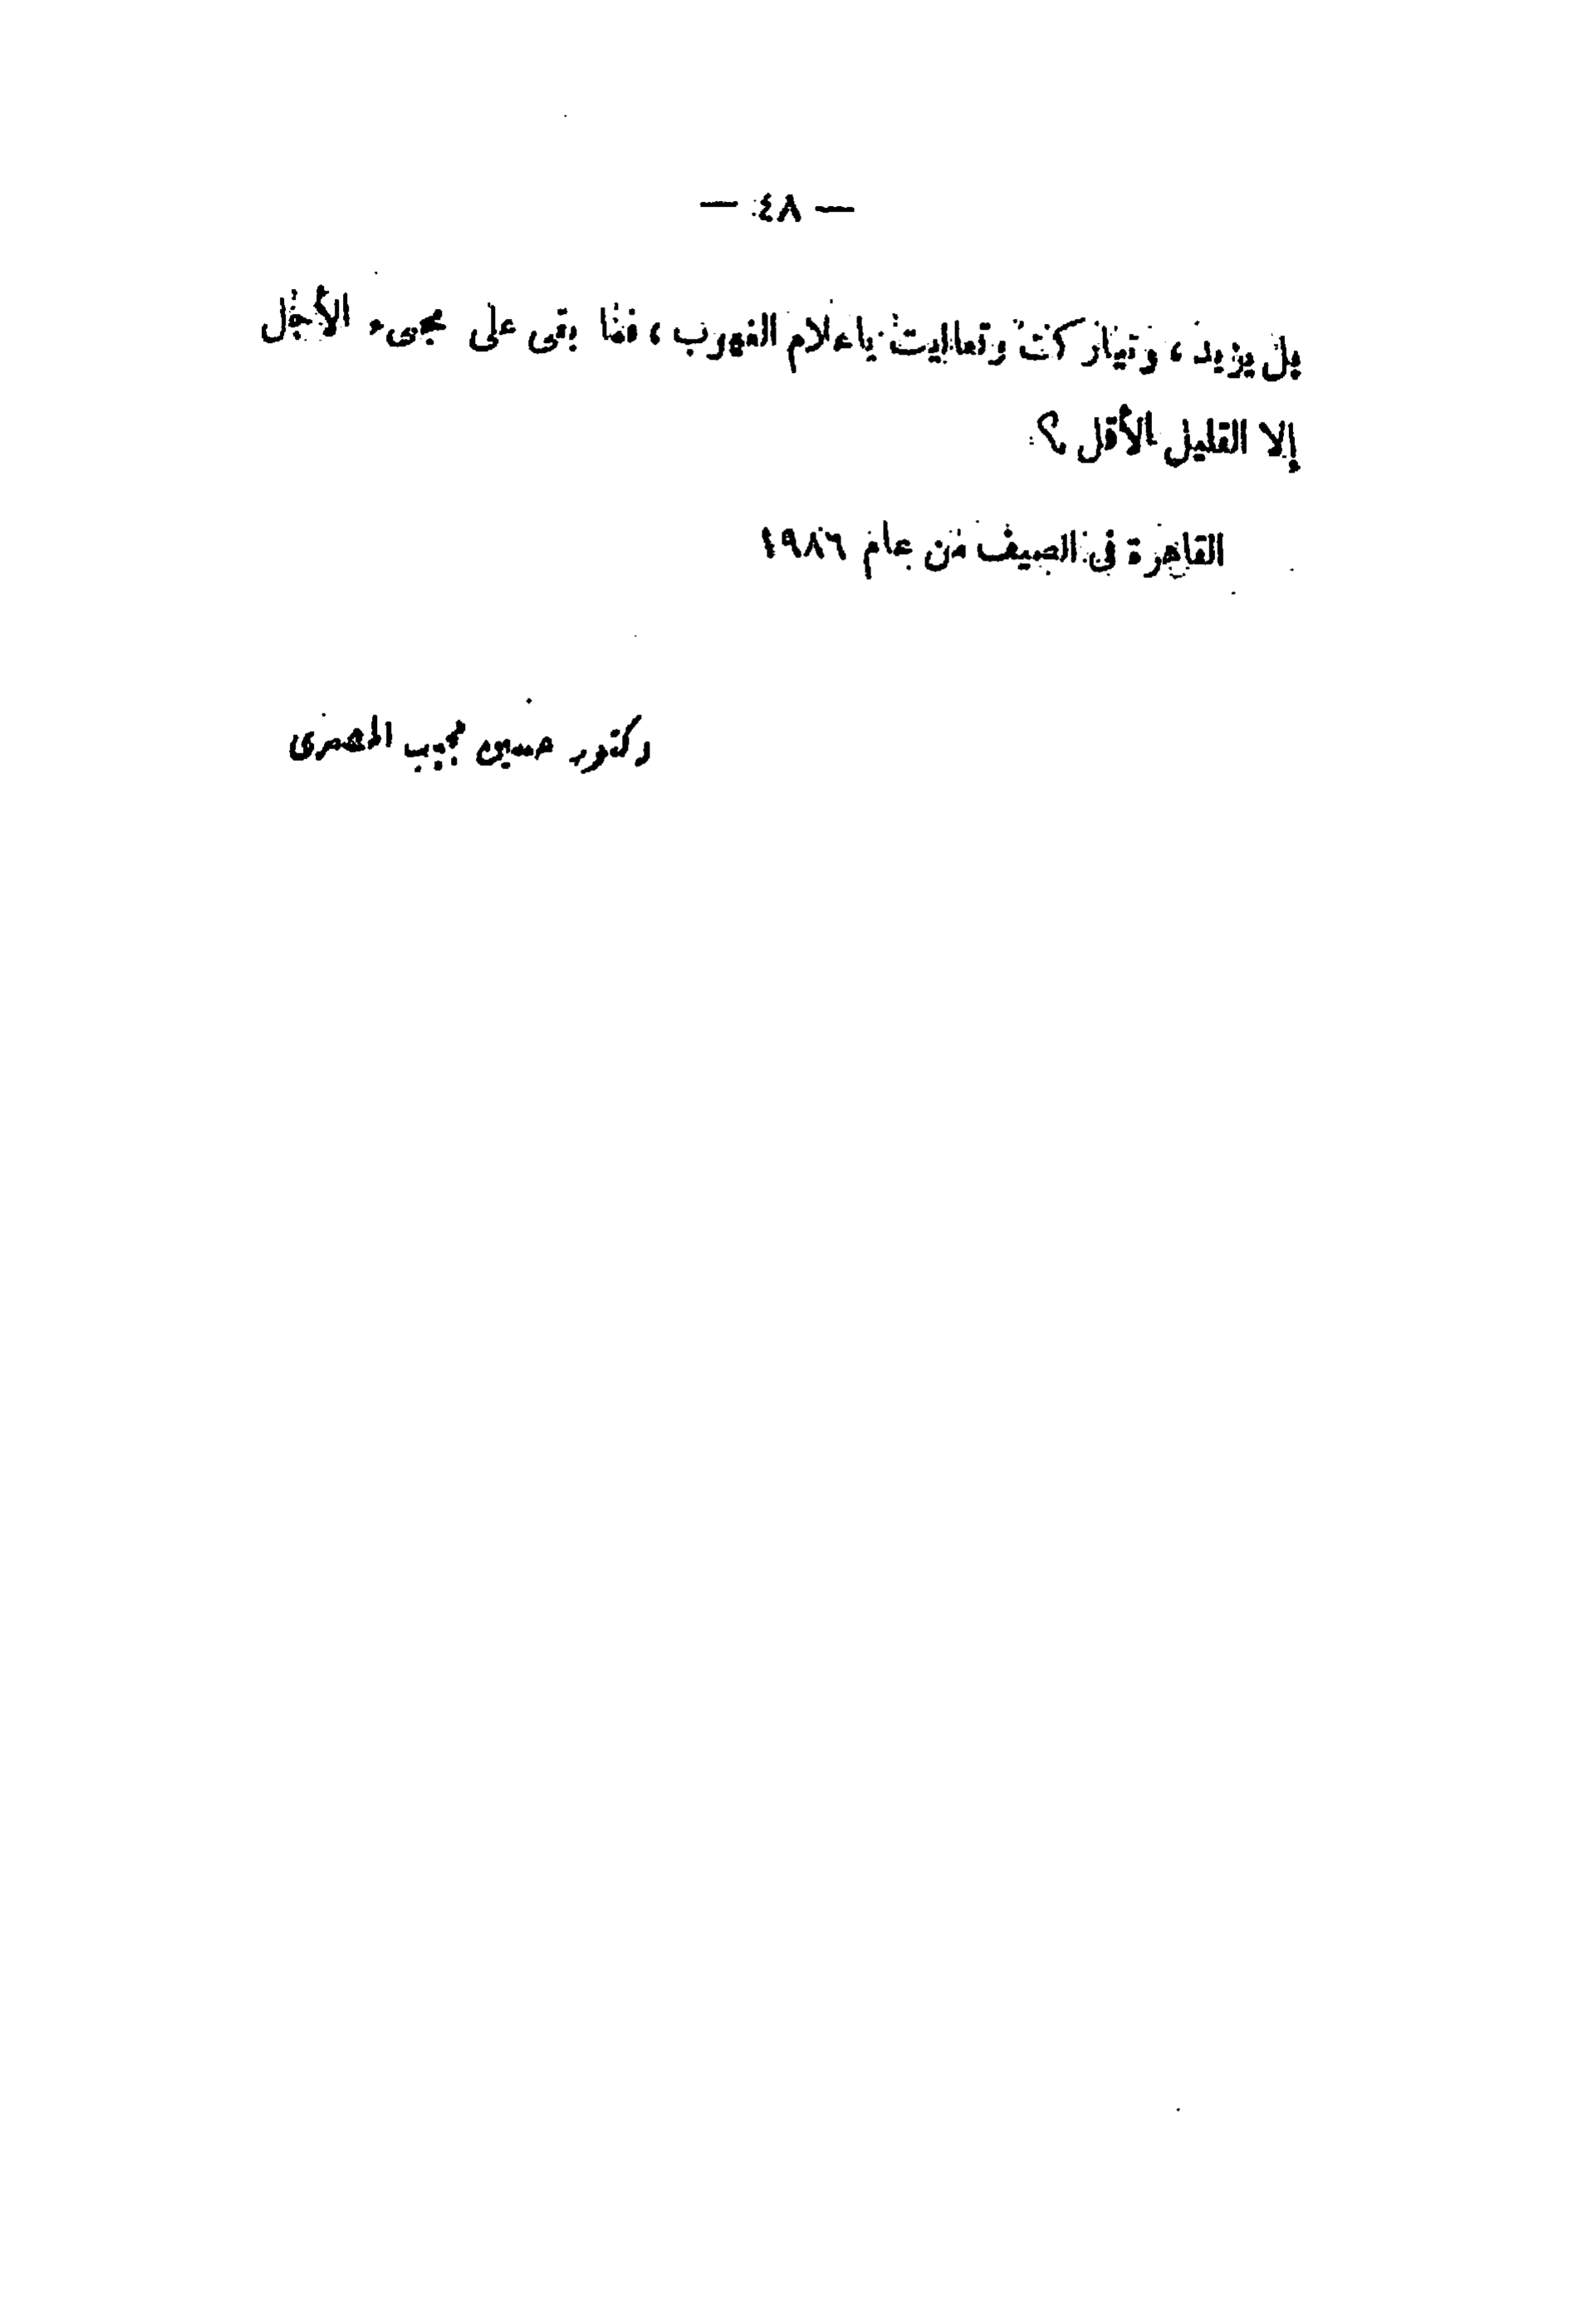 — ٤٨ —
بل يزيد ، وتباركت وتعاليت ياعلام الغيوب ، فما بقى على مجىء الأجل
إلا القليل الأقل ؟
القاهرة فى الصيف من عام ١٩٨٦
دكتور حسين مجيب المصرى